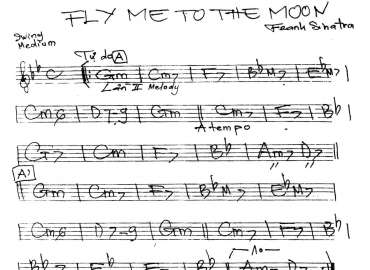 FLY ME TO THE MOON
Swing
Medium
Frank Sinatra
Tự do A
C Gm | Cm7 | F7 | BbM7 | EbM7 |
Lần II Melody
Cm6 | D7-9 | Gm || Cm7 | F7 | Bb |
A tempo
G7 | Cm | F7 | Bb | Am7 D7 ||
A'
Gm | Cm7 | F7 | BbM7 | EbM7 |
Cm6 | D7-9 | Gm || Cm7 | F7 | Bb |